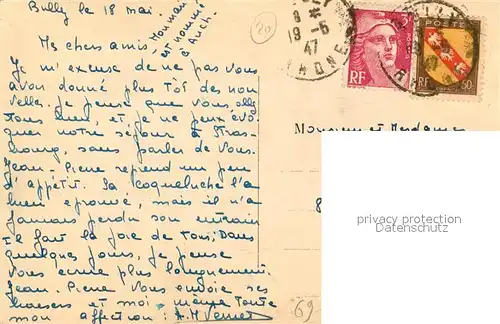 Bully le 18 mai.
Normand
est nommé
à Auch.
20
Mes chers amis,
Je m'excuse de ne pas vous
avoir donné plus tôt des nou
velles. Je pense que vous allez
tous bien, et je ne peux évo
quer notre séjour à Stras
bourg, sans parler de vous.
Jean-Pierre reprend un peu
d'appétit. Sa coqueluche l'a
bien éprouvé, mais il n'a
jamais perdu son entrain
Il fait la joie de tous; Dans
quelques jours, je pense
vous écrire plus longuement.
Jean-Pierre vous envoie ses
baisers et moi-même toute
mon affection: A.M Vernet
19-5
47
RHONE
RF
POSTE
RF 50c
Monsieur et Mesdames
8
privacy protection
www.ansichtskarten-center.de
69